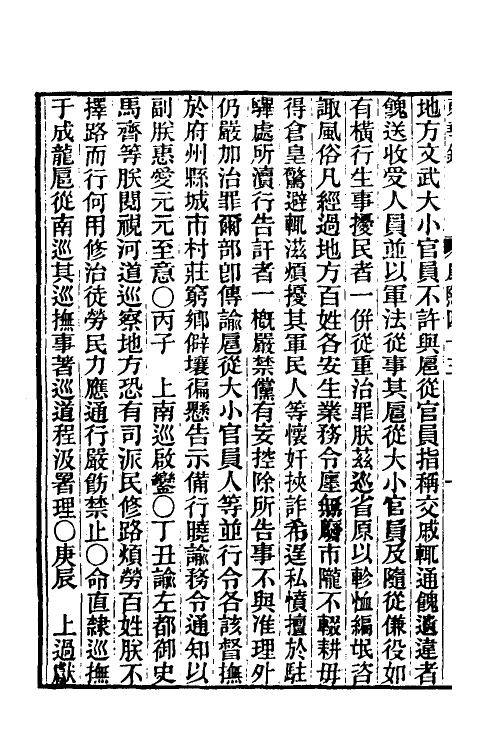 地方文武大小官員不許與扈從官員指稱交戚輒通餽遺違者
餽送收受人員並以軍法從事其扈從大小官員及隨從傔役如
有橫行生事擾民者一併從重治罪朕茲巡省原以軫恤編氓咨
諏風俗凡經過地方百姓各安生業務令廛無廢市隴不輟耕毋
得倉皇驚避輒滋煩擾其軍民人等懷奸挾詐希逞私憤擅於駐
蹕處所瀆行告訐者一槪嚴禁儻有妄控除所告事不與准理外
仍嚴加治罪爾部卽傳諭扈從大小官員人等並行令各該督撫
於府州縣城市村莊窮鄉僻壤徧懸告示備行曉諭務令通知以
副朕惠愛元元至意〇丙子　上南巡啟鑾〇丁丑諭左都御史
馬齊等朕閱視河道巡察地方恐有司派民修路煩勞百姓朕不
擇路而行何用修治徒勞民力應通行嚴飭禁止〇命直隸巡撫
于成龍扈從南巡其巡撫事著巡道程汲署理〇庚辰　上過獻